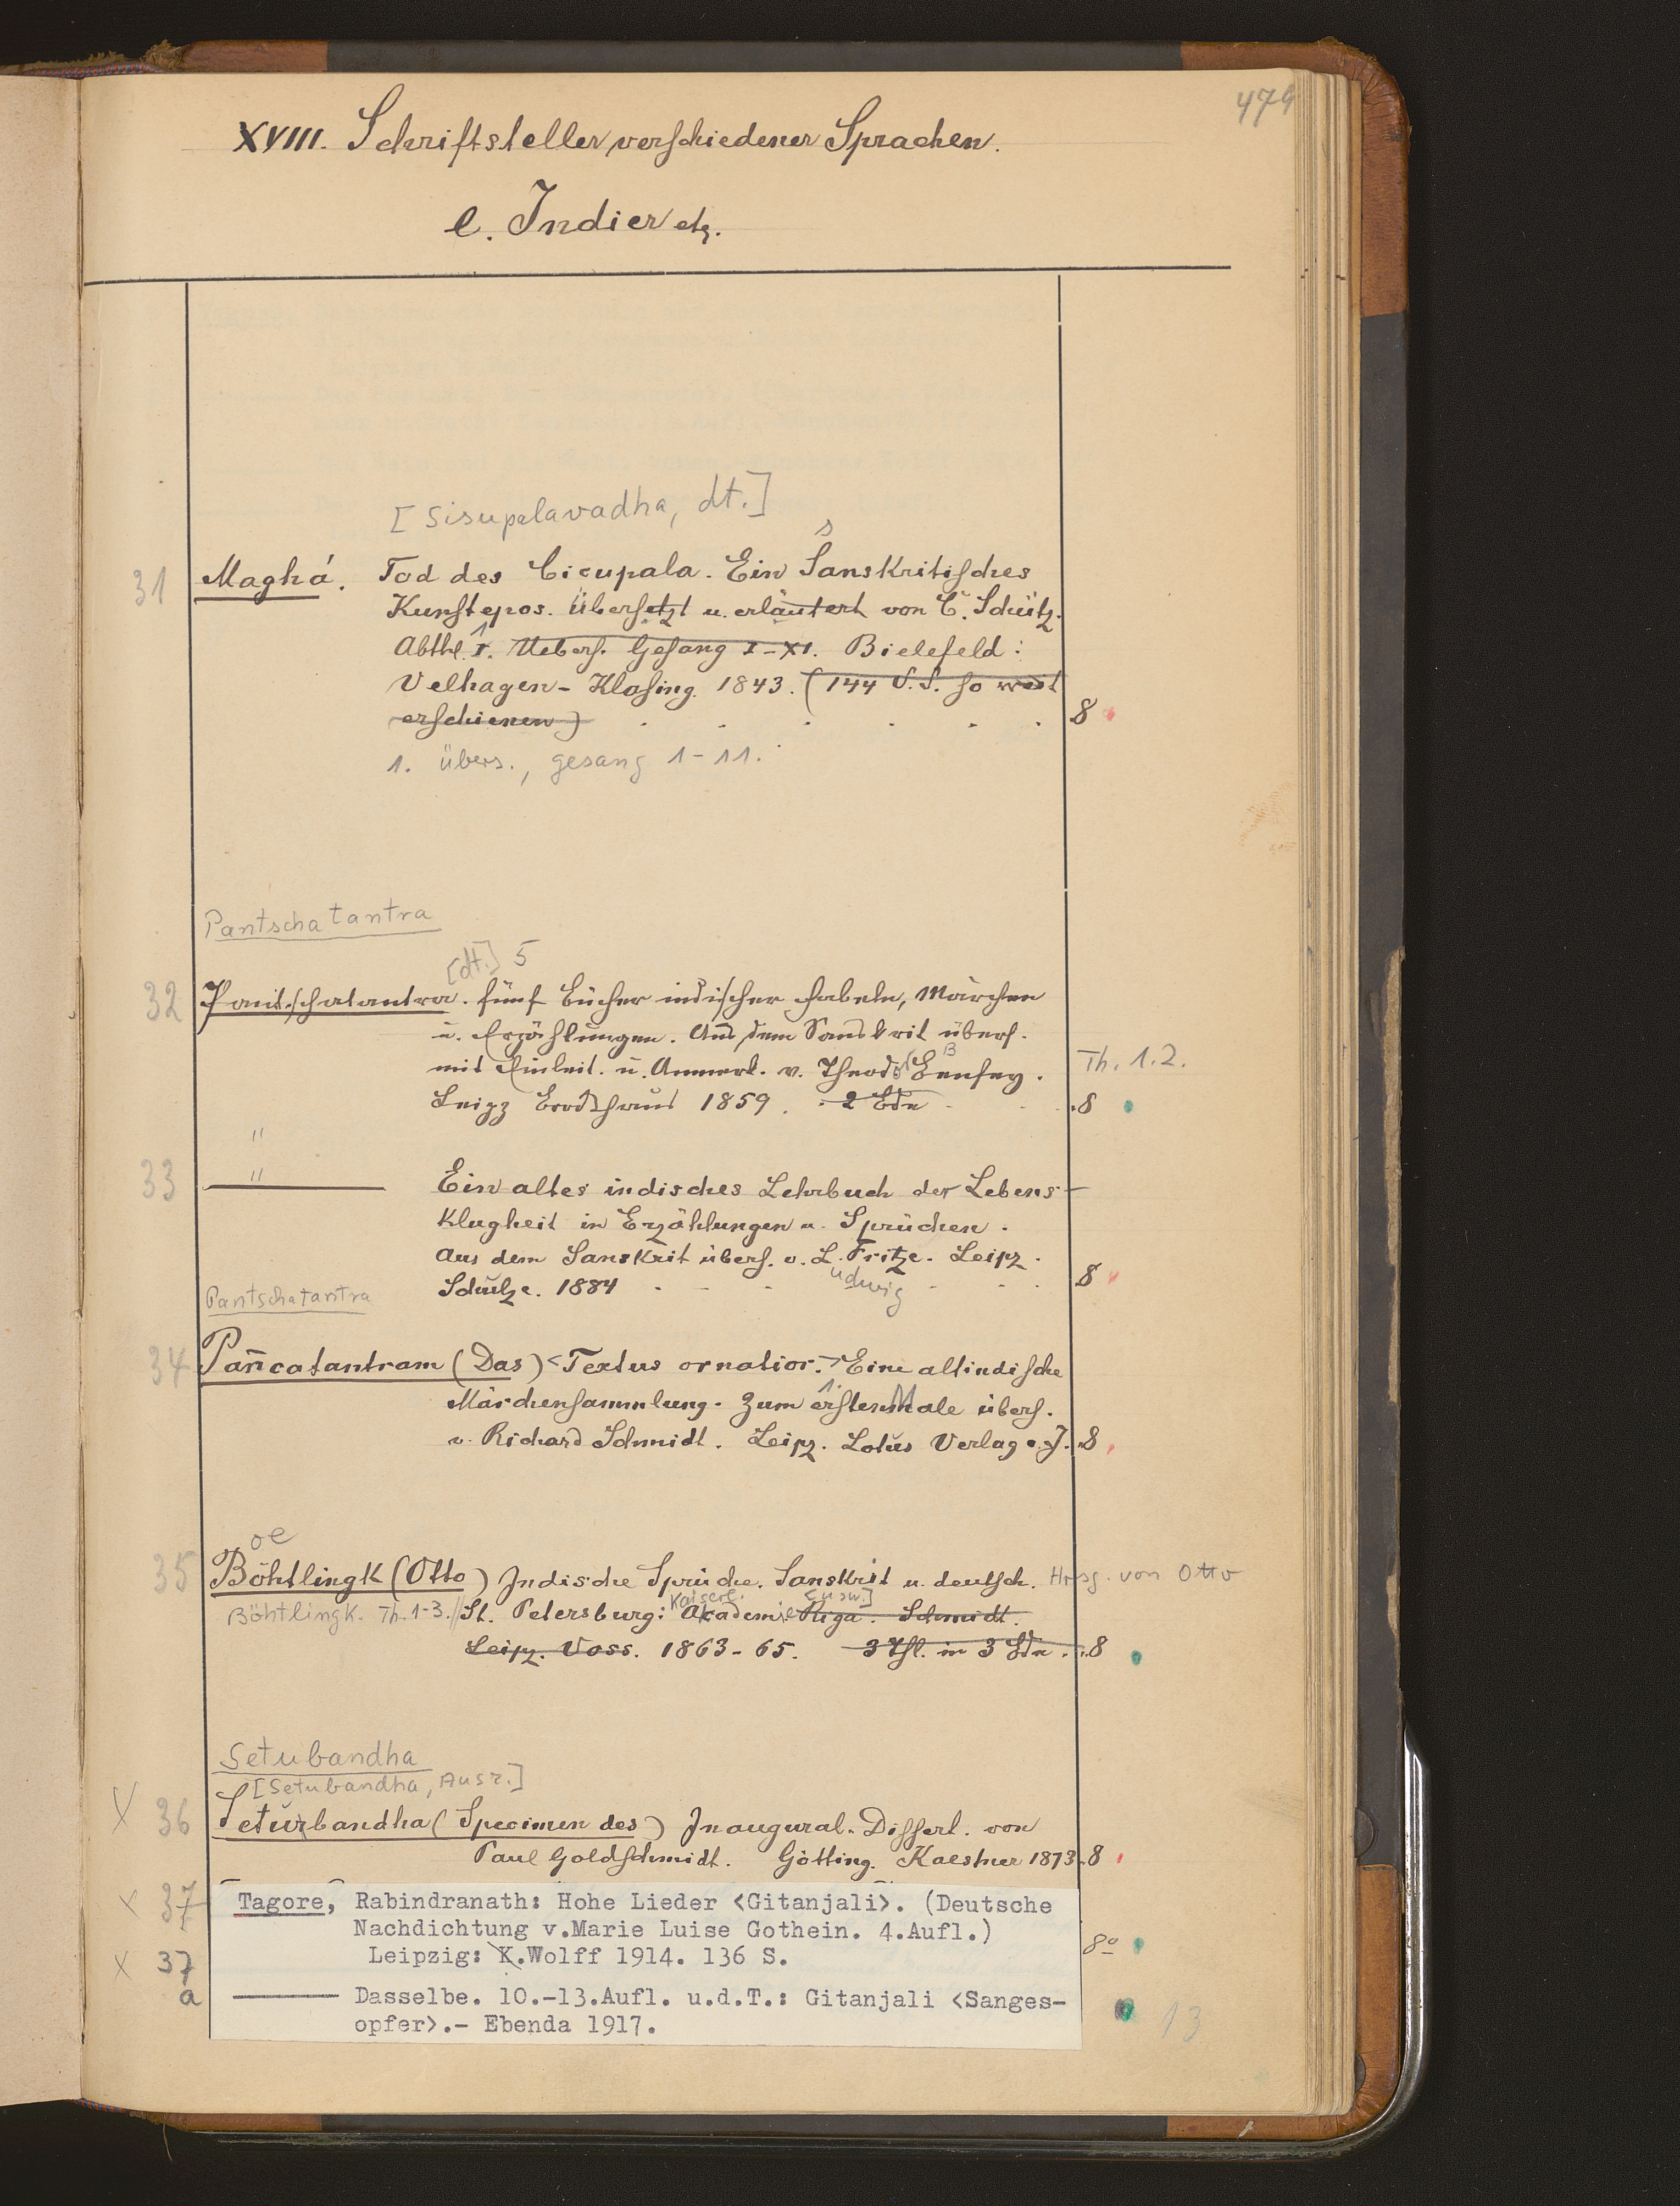 479
XVIII. Schriftsteller verschiedener Sprachen.
e. Indier etz.
[Sisupalavadha, dt.]
s
31 Maghá. Tod des Çiçupala. Ein Sanskritisches
Kunstepos. Übersetzt u. erläutert von C. Schütz.
1
Abthl. I. Uebers. Gesang I-XI. Bielefeld:
Velhagen-Klasing. 1843. (144 S.S. so weit
erschienen) 8
1. Übers., gesang 1-11.
Pantschatantra
[dt.] 5
32 Pantschatantra. fünf Bücher indischer Fabeln, Märchen
u. Erzählungen. Aus dem Sanskrit übers.
B
mit Einleit. u. Anmerk. v. Theodor Benfey. Th. 1.2.
Leipz Brockhaus 1859. 2 Bde 8
"
33 " Ein altes indisches Lehrbuch der Lebens-
klugheit in Erzählungen u. Sprüchen.
Aus dem Sanskrit übers. v. L. Fritze. Leipz.
udwig
Schulze. 1884 8
Pantschatantra
34 Pañcatantram (Das) <Textus ornatior.> Eine altindische
1. M
Märchensammlung. Zum erstenmale übers.
v. Richard Schmidt. Leipz. Lotus Verlag o.J. 8
oe
35 Böhtlingk (Otto) Indische Sprüche. Sanskrit u. deutsch. Hrsg. von Otto
Kaiserl. [usw.]
Böhtlingk. Th. 1-3. // St. Petersburg: Akademie Riga. Schmidt.
Leipz. Voss. 1863-65. 3 Thl. in 3 Bdn. 8
Setubandha
[Setubandha, Ausz.]
X 36 Seturbandha (Specimen des) Inaugural-Dissert. von
Paul Goldschmidt. Götting. Kaestner 1873. 8
x 37 Tagore, Rabindranath: Hohe Lieder <Gitanjali>. (Deutsche
Nachdichtung v.Marie Luise Gothein. 4.Aufl.)
x 37 Leipzig: K.Wolff 1914. 136 S. 8º
a Dasselbe. 10.-13.Aufl. u.d.T.: Gitanjali <Sanges-
opfer>.- Ebenda 1917. 13